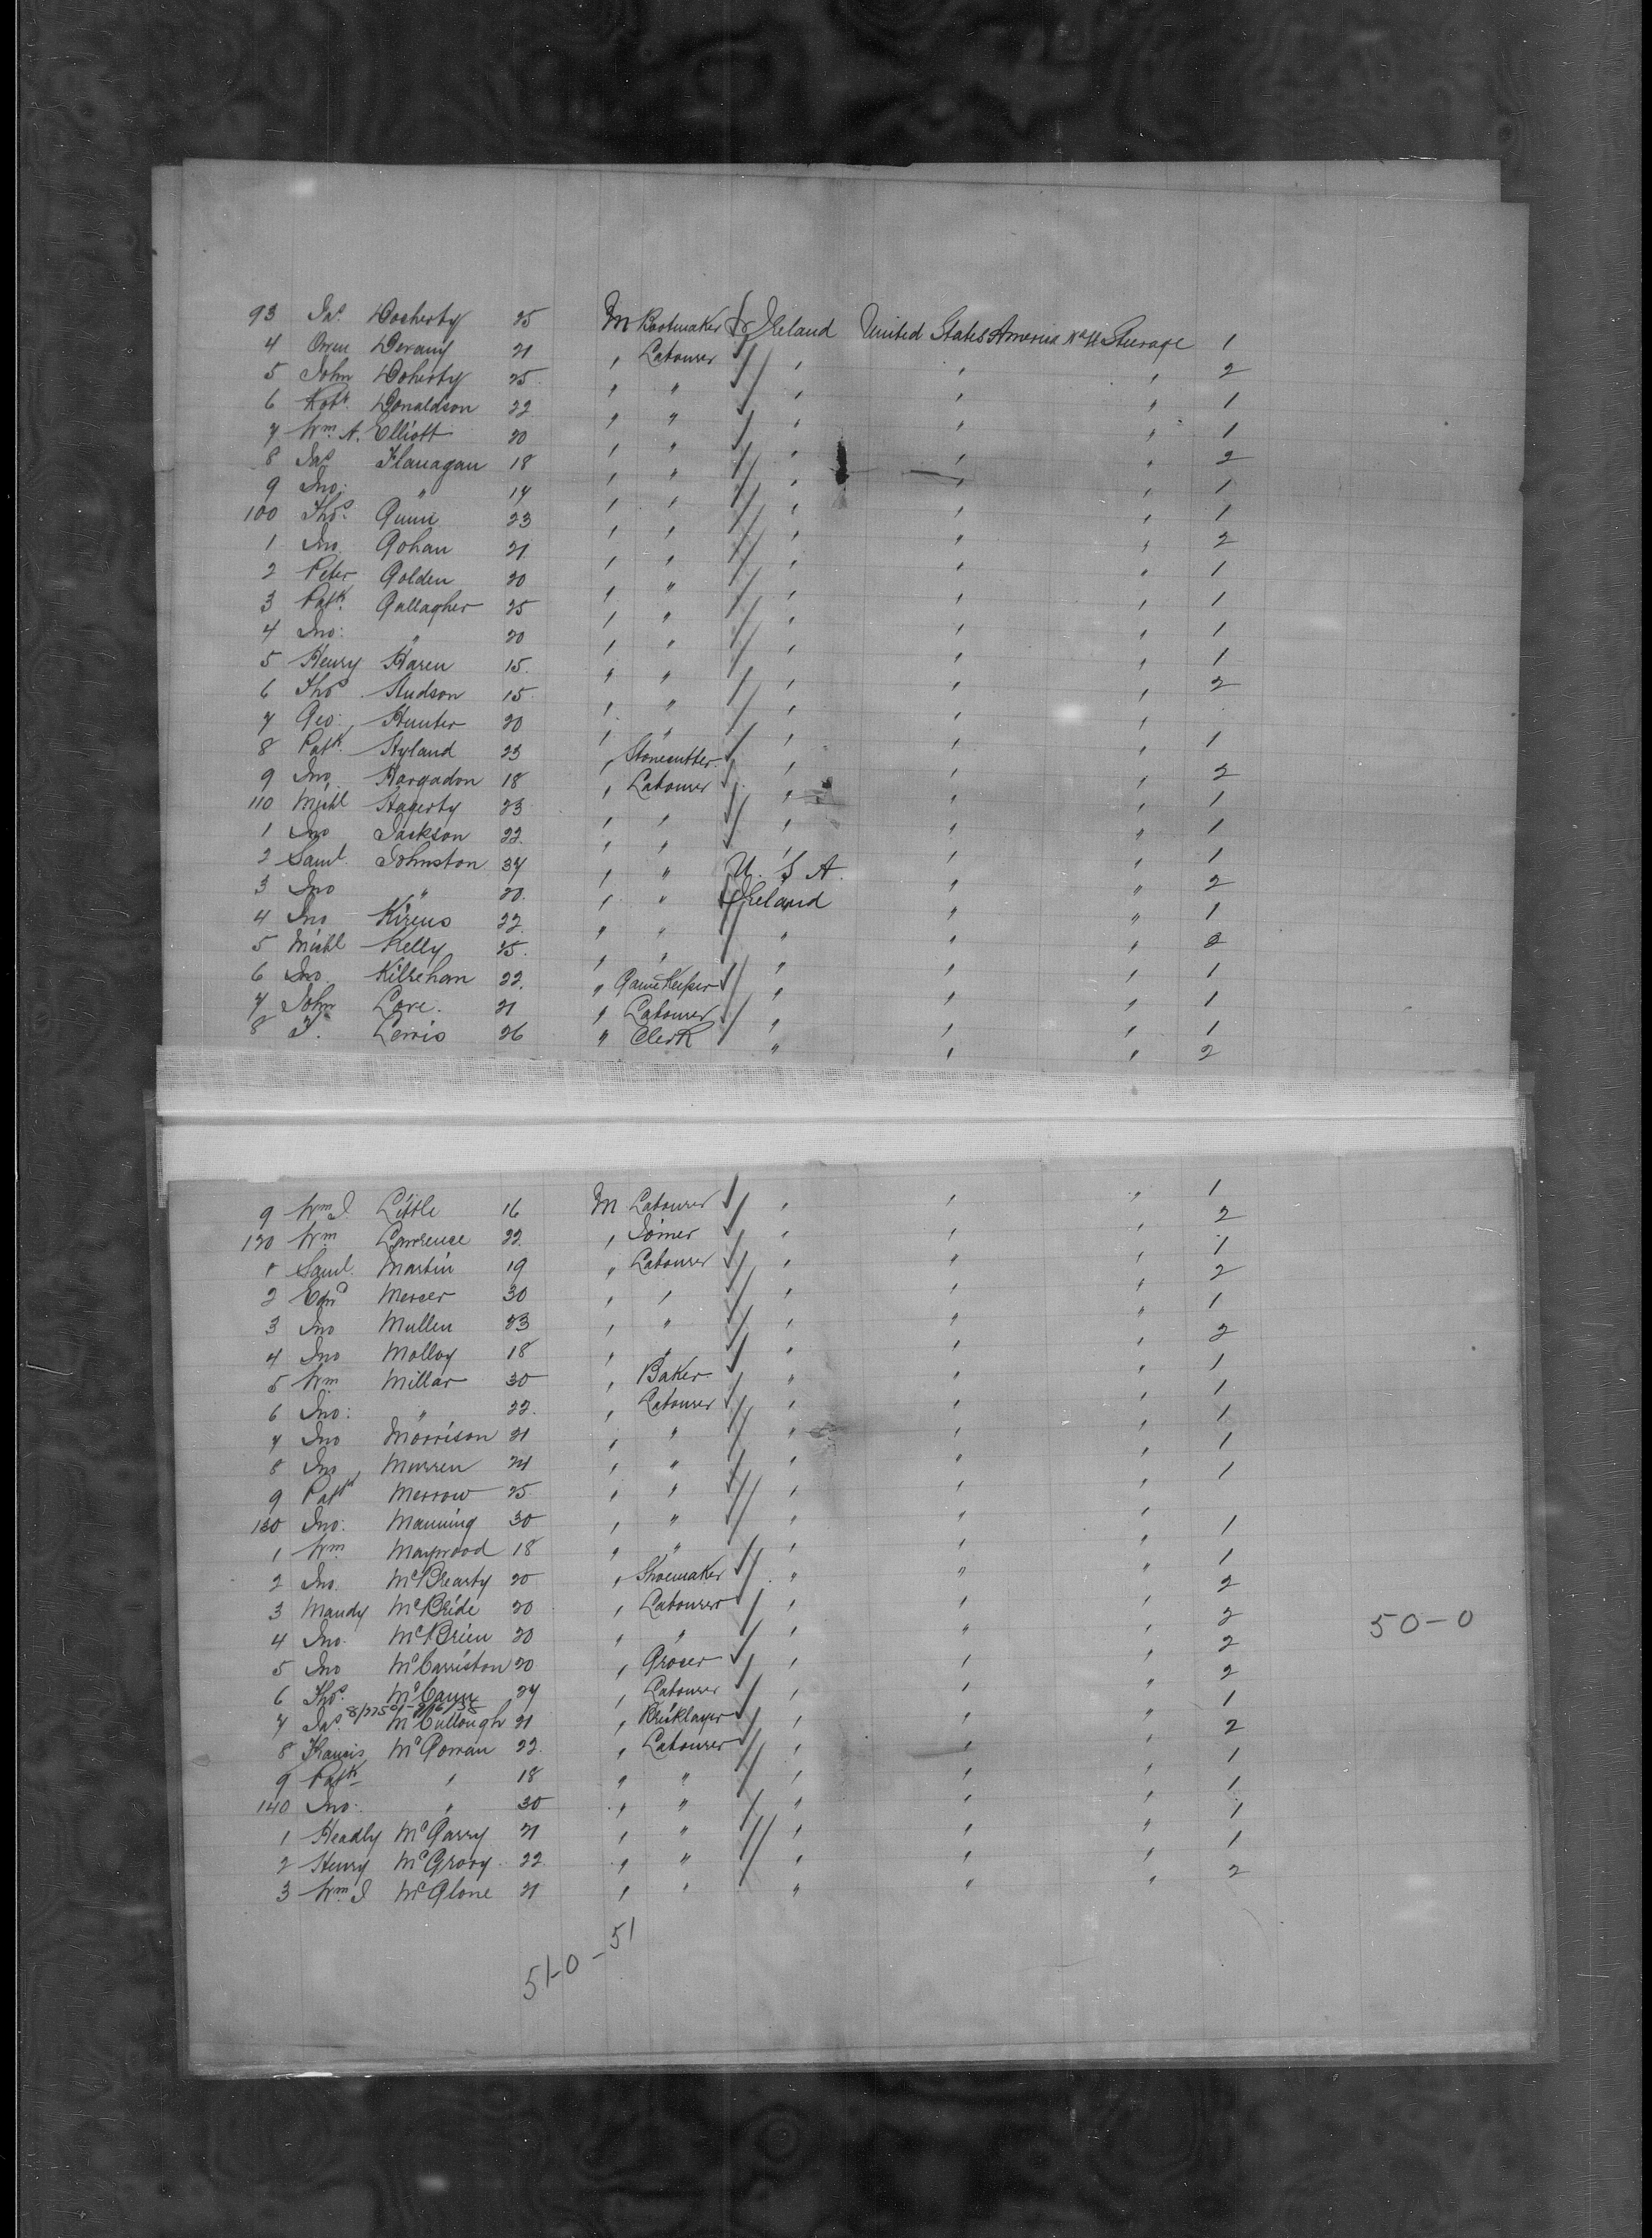 93 Jas. Docherty 25 M Bootmaker Ireland United States America No 4 Steerage 1
4 Owen Devany 21 " Labourer " " " 2
5 John Doherty 25 " " " " " 1
6 Robt. Donaldson 22 " " " " " 1
7 Wm. A. Elliott 20 " " " " " 2
8 Jas Flanagan 18 " " " " " 1
9 Jno: " 14 " " " " " 1
100 Thos. Gunn 23 " " " " " 2
1 Jno. Gohan 21 " " " " " 1
2 Peter Golden 20 " " " " " 1
3 Patk. Gallagher 25 " " " " " 1
4 Jno: " 20 " " " " " 1
5 Henry Haren 15 " " " " " 2
6 Thos. Hudson 15 " " " " "
7 Geo: Hunter 20 " " " " " 1
8 Patk. Hyland 23 " Stonecutter " " " 2
9 Jno. Hargadon 18 " Labourer " " " 1
110 Michl Hagerty 23 " " " " " 1
1 Jno Jackson 22 " " " " " 1
2 Saml. Johnston 34 " " U. S. A. " " 2
3 Jno " 20 " " Ireland " " 1
4 Jno Kirens 22 " " " " " 2
5 Michl Kelly 25 " " " " " 1
6 Jno. Killrehan 22 " Game Keeper " " " 1
7 John Love. 21 " Labourer " " " 1
8 T. Lewis 26 " Clerk " " " 2
9 Wm J. Little 16 M Labourer " " " 1
120 Wm Lawrence 22 " Joiner " " " 2
1 Saml. Martin 19 " Labourer " " " 1
2 Edwd Mercer 30 " " " " " 2
3 Jno Mullen 23 " " " " " 1
4 Jno Molloy 18 " " " " " 2
5 Wm Millar 30 " Baker " " " 1
6 Jno: " 22 " Labourer " " " 1
7 Jno Morrison 21 " " " " " 1
8 Jno Murren 24 " " " " " 1
9 Patk Merrow 25 " " " " " 1
130 Jno: Manning 30 " " " " "
1 Wm Maywood 18 " " " " " 1
2 Jno. McBrearty 20 " Shoemaker " " " 1
3 Mandy McBride 20 " Labourer " " " 2
4 Jno. McBrien 20 " " " " " 2
50-0
5 Jno McCarriston 20 " Grocer " " " 2
6 Thos. McCann 24 " Labourer " " " 2
7 Jas. McCullough 21 " Bricklayer " " " 1
8 Francis McGowan 22 " Labourer " " " 2
9 Patk " 18 " " " " " 1
140 Jno: " 30 " " " " " 1
1 Headly McGarry 21 " " " " " 1
2 Henry McGrory 22 " " " " " 1
3 Wm J McGlone 21 " " " " " 2
51-0-51